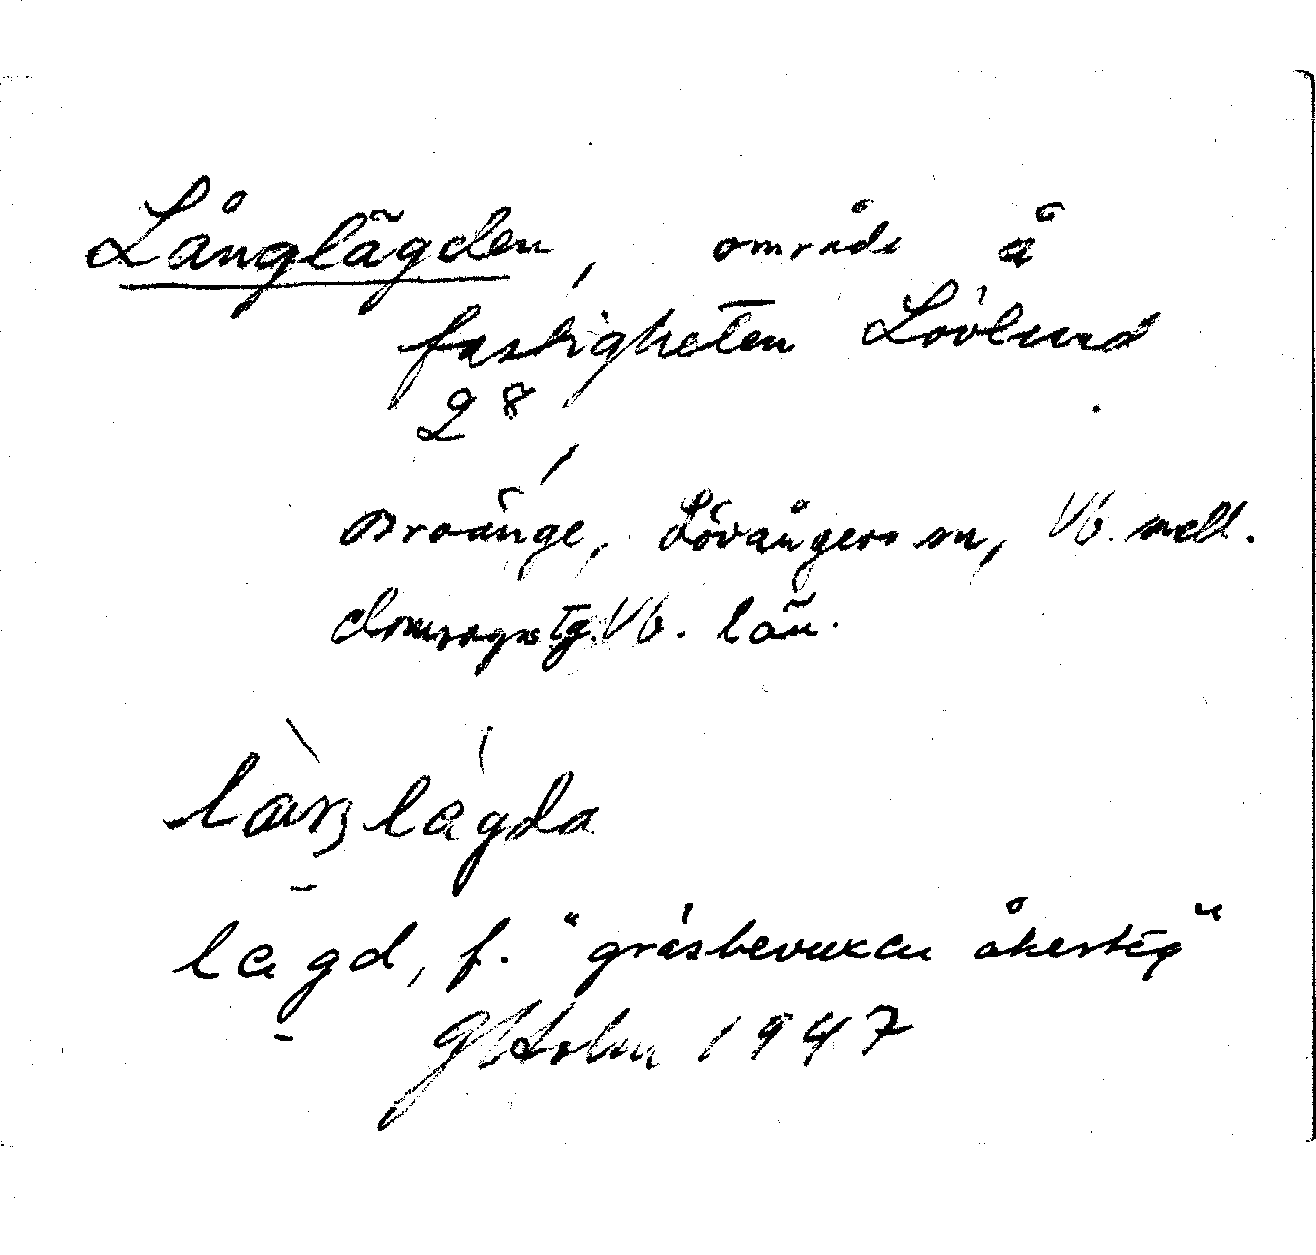 Långlägden, område å
fastigheten Lövlund
2⁸,
Broänge, Lövångers sn, Vb. mell.
domsagas tg. Vb. län.
làŋlágda
lagd, f. "gräsbevuxen åkerteg"
G Holm 1947